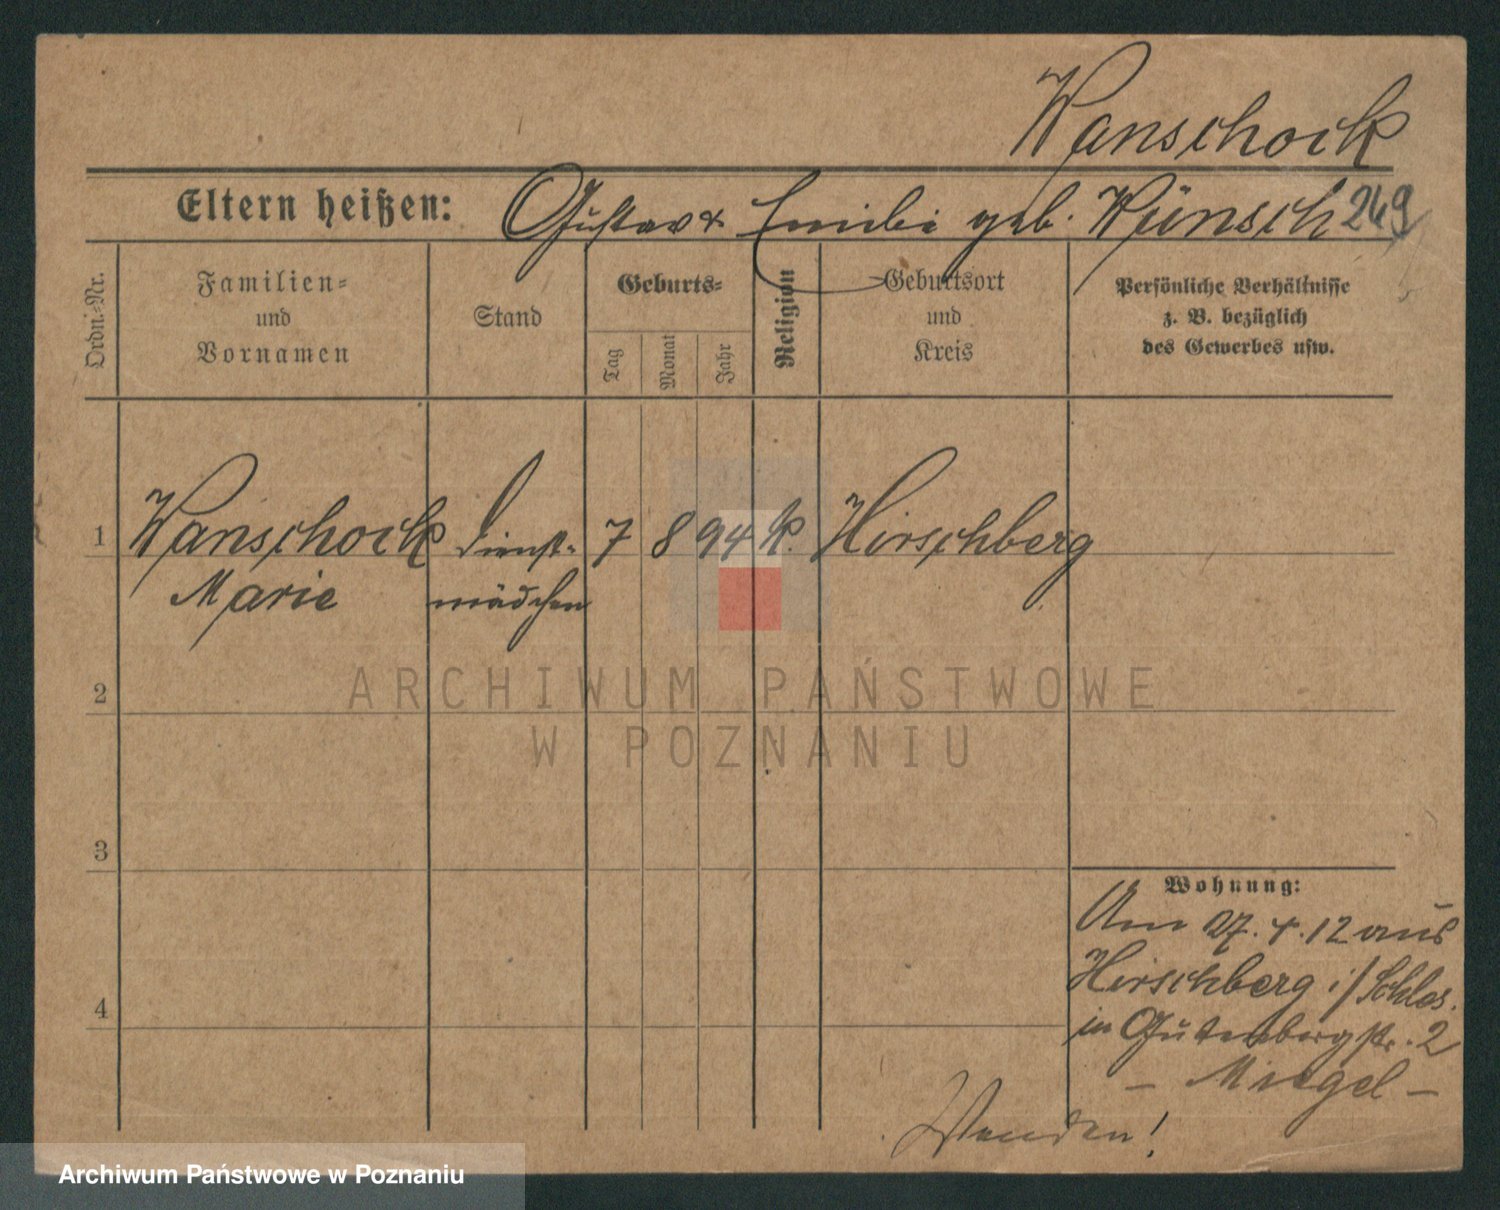 Wanschock
Eltern heißen: Gustav & Emilie geb. Wünsch 249
Ordn.-Nr.
Familien- und Vornamen
Stand
Geburts-
Tag
Monat
Jahr
Religion
Geburtsort und Kreis
Persönliche Verhältnisse
z. B. bezüglich
des Gewerbes usw.
1 Wanschock Dienst- 7 8 94 k. Hirschberg
Marie mädchen
2
3
4
Wohnung:
Am 27.4.12 aus
Hirschberg i/Schles.
in Gutenbergstr. 2
- Miegel -
Wenden!
ARCHIWUM PAŃSTWOWE
W POZNANIU
Archiwum Państwowe w Poznaniu